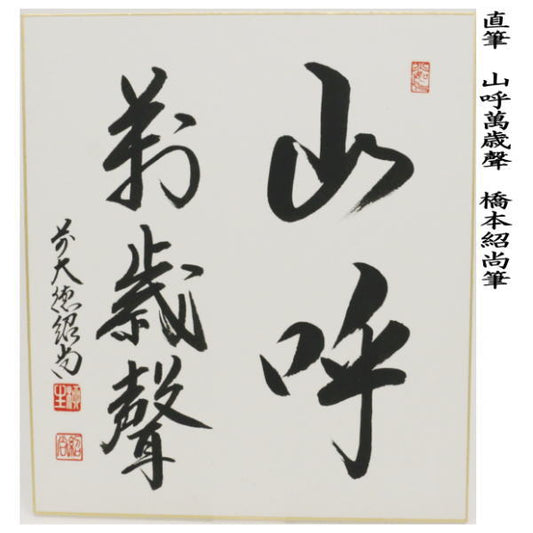 直筆　山呼萬歳聲　橋本紹尚筆
山呼
萬歳聲
前大徳紹尚